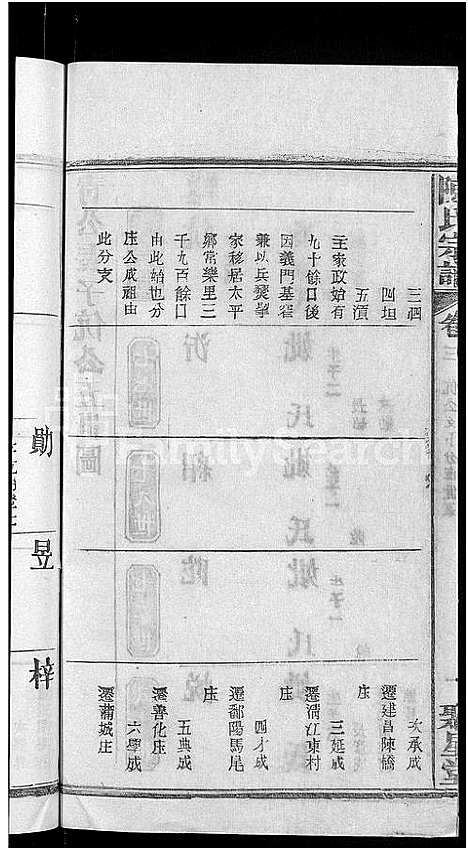 陳氏宗譜
卷三
聚星堂
三珊
四坦
五濆
主家政始有
九十餘口後
因義門基窄
兼以兵燹擧
家移居太平
鄉常樂里三
千九百餘口
由此始也分
庄公咸祖由
此分支
次承成
遷建昌陳橋
庄
三延成
遷淸江東村
庄
四才成
遷鄱陽馬尾
庄
五典成
遷善化庄
六學成
遷蒲城庄
勛
昱
梓
FamilySearch